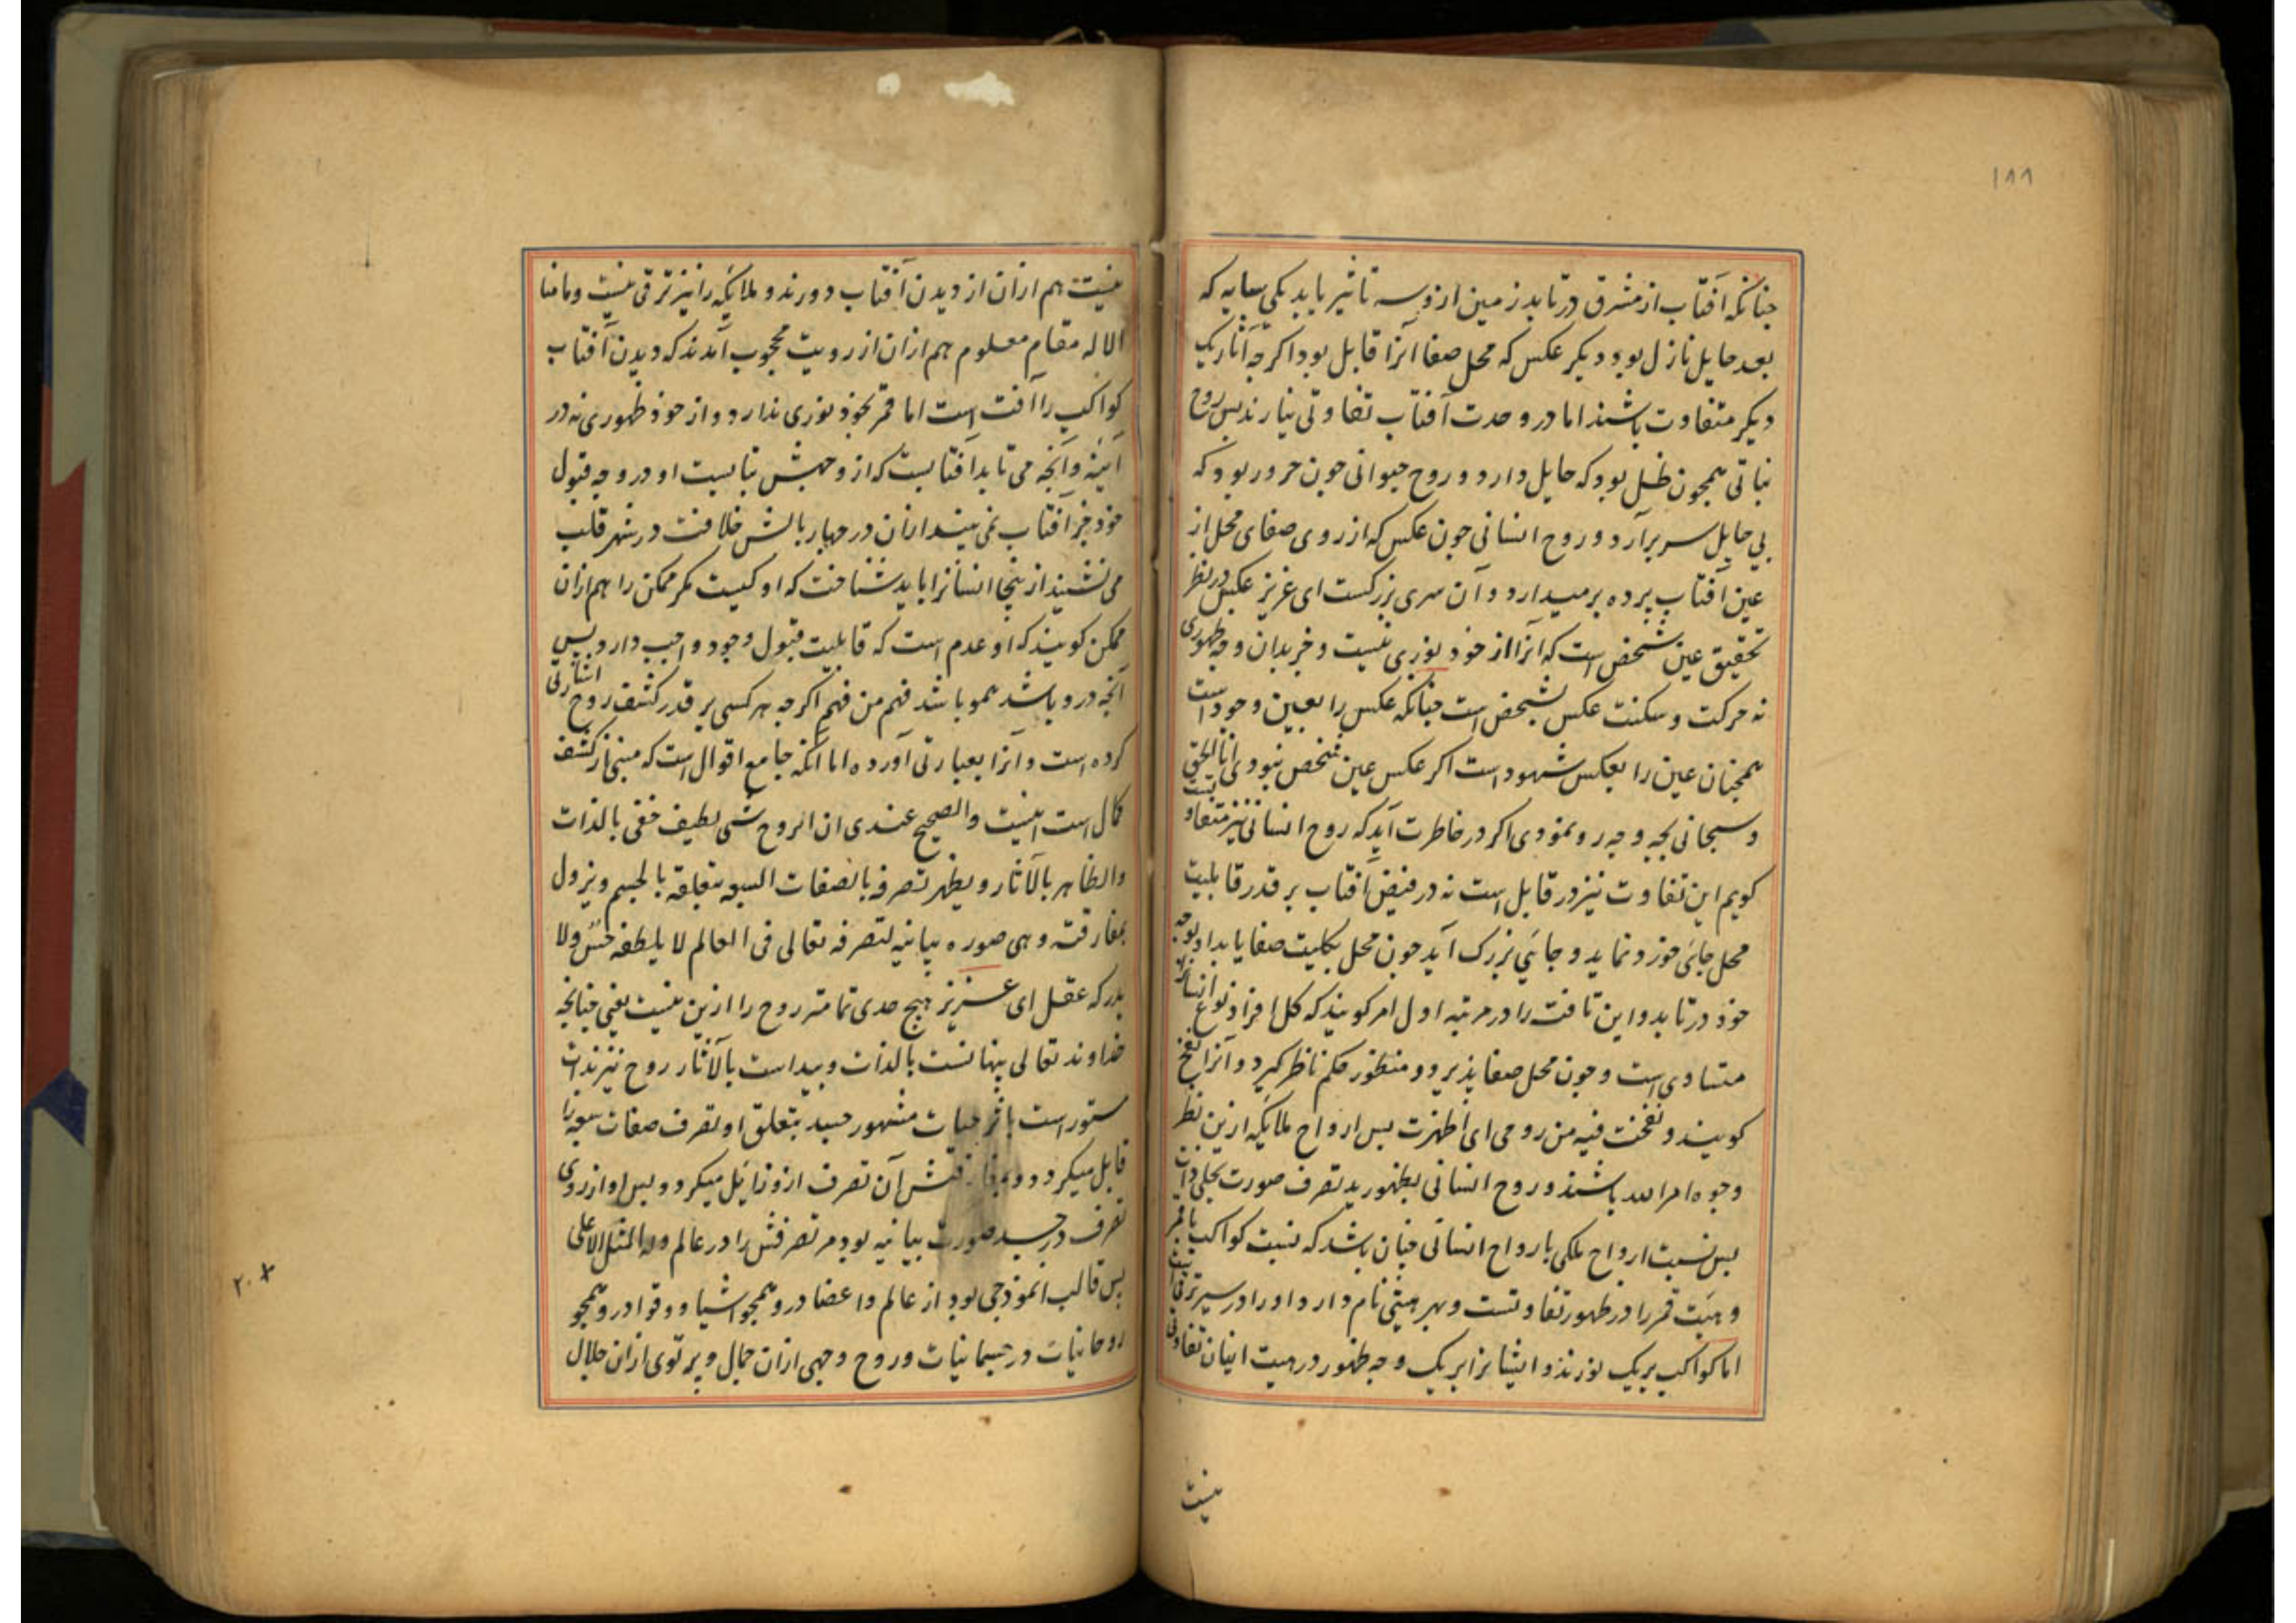 ۱۸۸
چنانکه آفتاب از مشرق درتابد زمین ازو سه تاثیر یابد یکی سایه که
بعد حایل نازل بود و دیگر عکس که محل صفا آنرا قابل بود اگرچه آثار یک
دیگر متفاوت باشند اما در وحدت آفتاب تفاوتی نیارند پس روح
نباتی همچون ظل بود که حایل دارد و روح حیوانی چون حرور بود که
بی حایل سر برآرد و روح انسانی چون عکس که از روی صفای محل از
عین آفتاب پرده برمیدارد و آن سری بزرکست ای عزیز عکس در نظر
تحقیق عین شخص است که آنرا از خود نوری نیست و خبر بدان وجه ظهوری
نه حرکت و سکنت عکس بشخص است چنانکه عکس را بعین وجود است
همچنان عین را بعکس شهود است اکر عکس عین شخص نبودی انا الحق
و سبحانی بچه وجه رو نمودی اکر در خاطرت آید که روح انسانی نیز متفاوتست
کویم این تفاوت نیز در قابل است نه در فیض آفتاب بر قدر قابلیت
محل جائی خورد نماید و جائی بزرک آید چون محل بکلیت صفا یابد او بوجه
خود درتابد و این تافت را در مرتبه اول امر کویند که کل افراد نوع انسانرا
متساوی است و چون محل صفا پذیرد و منظور حکم ناظر کیرد و آنرا نفخ
کویند و نفخت فیه من روحی ای اظهرت پس ارواح ملایکه ازین نظر
وجوه امر الله باشند و روح انسانی بظهور ید تصرف صورت تجلی ذات
پس نسبت ارواح ملکی با رواح انسانی چنان باشد که نسبت کواکب با قمر
و هیت قمر را در ظهور تفاوتست و بهر هیتی نام دارد او را در سیر ترقی است
اما کواکب بریک نورند و ایشانرا بریک وجه ظهور در هیت ایشان تفاوتی
نیست
نیست هم ازان از دیدن آفتاب دورند و ملایکه را نیز ترقی نیست و ما منا
الا له مقام معلوم هم ازان از رویت محجوب آمدند که دیدن آفتاب
کواکب را آفت است اما قمر بخود نوری ندارد و از خود ظهوری نه در
آینه و آنچه می تابد آفتابست که از وجهش تابیست او در وجه قبول
خود جز آفتاب نمی بیند ازان در چهار بالش خلافت در شهر قلب
می نشیند ازینجا انسانرا باید شناخت که او کیست مکر ممکن را هم ازان
ممکن کویند که او عدم است که قابلیت قبول وجود واجب دارد پس
آنچه درو باشد همو باشد فهم من فهم اکرچه هر کسی بر قدر کشف روح اشارتی
کرده است و آنرا بعبارتی آورده اما آنکه جامع اقوال است که مبنی از کشف
کمال است اینست والصحیح عندی ان الروح شی لطیف خفی بالذات
والظاهر بالآثار و یظهر تصرفه بالصفات السبعه بتعلقه بالجسم و یزول
بمفارقته و هی صوره بیانیه لتصرفه تعالی فی العالم لا یلطفه حس ولا
یدرکه عقل ای عزیز هیچ حدی تمامتر روح را ازین نیست یعنی چنانچه
خداوند تعالی پنهانست بالذات و پیداست بالآثار روح نیز بذات
مستور است باثر حیات مشهور جسد بتعلق او تصرف صفات سبعه را
قابل میکردد و بمفارقتش آن تصرف ازو زایل میکردد پس او از روی
تصرف در جسد صورت بیانیه بود مر تصرفش را در عالم وله المثل الاعلی
پس قالب انموذجی بود از عالم و اعضا درو همچو اشیا و قوا درو همچو
روحانیات در جسمانیات و روح وجهی ازان جمال و پرتوی ازان جلال